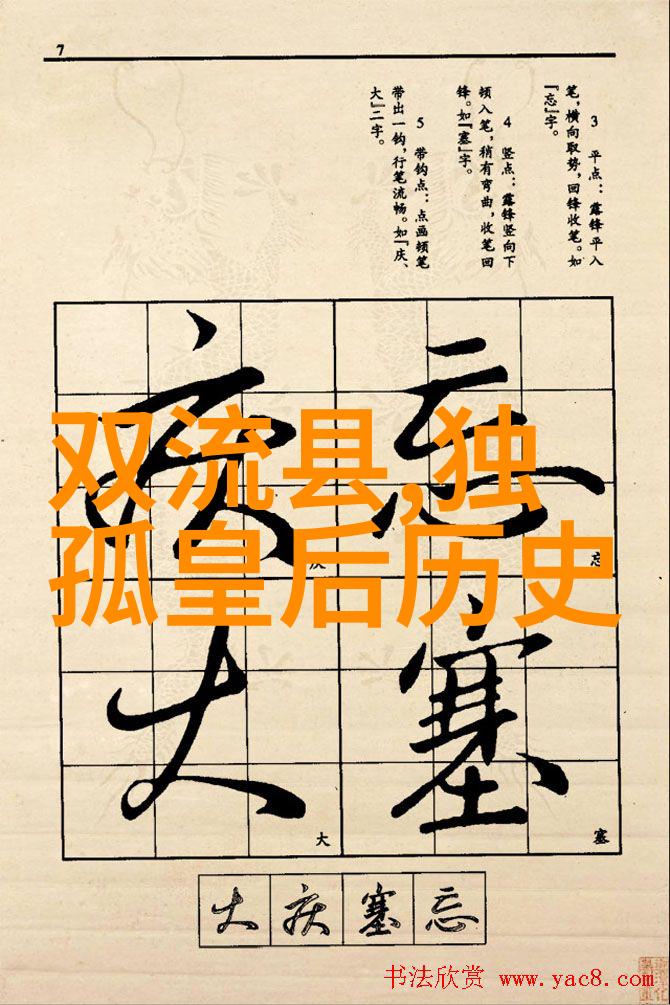 7
3 平点：露锋平入
笔，横向取势，回锋收笔。如
『忘』字。
4 竖点：露锋竖向下
顿入笔，稍有弯曲，收笔回
锋。如『塞』字。
5 带钩点：点画顿笔
带出一钩，行笔流畅。如『庆、
大』二字。
双流县,独
孤皇后历史
忘
塞
庆
大
忘
塞
庆
大
大庆塞忘
书法欣赏 www.yac8.com